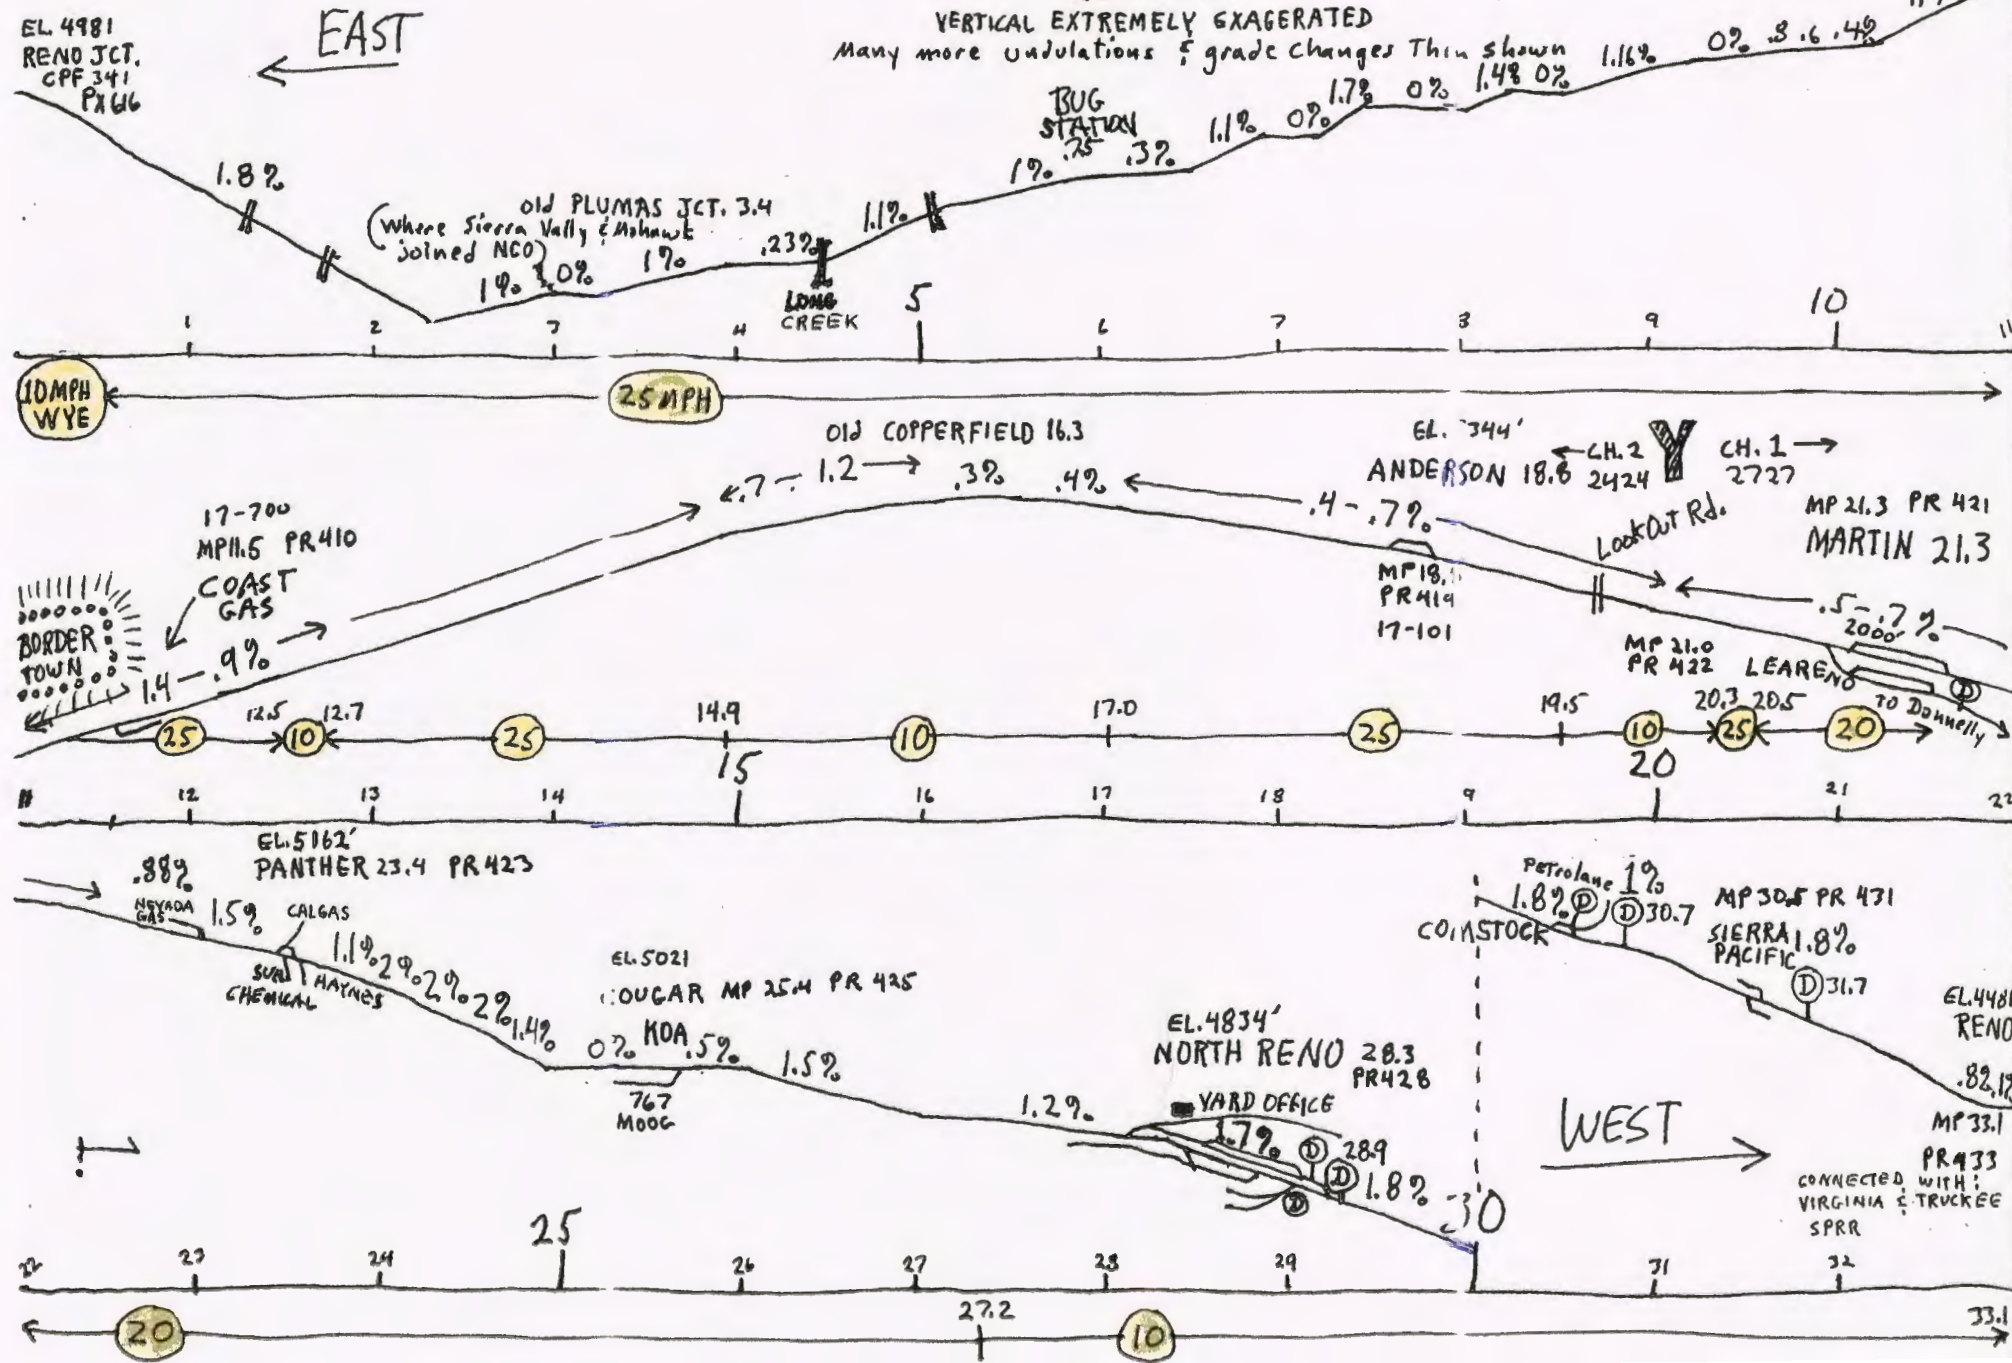 EL. 4981
RENO JCT.
CPF 341
PX 616
EAST
VERTICAL EXTREMELY EXAGERATED
Many more undulations & grade changes Thin shown
1.8%
Old PLUMAS JCT. 3.4
(Where Sierra Vally & Mohawk
joined NCO)
1% 0% 1% .23%
LONG
CREEK
1.1%
BUG
STATION
1% .75 .3%
1.1% 0% 1.7% 0% 1.48 0% 1.16% 0% .8 .6 .4%
1 2 3 4 5 6 7 8 9 10 11
10 MPH
WYE
25 MPH
Old COPPERFIELD 16.3
.7 - 1.2
.3% .4%
.4 - .7%
EL. 344'
ANDERSON 18.8
CH. 2
2424
Y
CH. 1
2727
LookOut Rd.
MP 21.3 PR 421
MARTIN 21.3
17-700
MP11.5 PR 410
COAST
GAS
BORDER
TOWN
1.4 - .9%
MP 18.
PR 419
17-101
.5 - .7%
2000'
MP 21.0
PR 422
LEARENO
D
TO Donnelly
25 12.5 10 12.7 25 14.9 10 17.0 25 19.5 10 20.3 25 20.5 20
11 12 13 14 15 16 17 18 9 20 21 22
.88%
NEVADA
GAS
EL. 5162'
PANTHER 23.4 PR 423
1.5%
CALGAS
CHEMICAL
HAYNES
1.1% 2% 2% 2% 2% 1.4%
EL. 5021
OUGAR MP 25.4 PR 425
0% KOA .5%
767
MOOG
1.5%
1.2%
EL. 4834'
NORTH RENO 28.3
PR 428
YARD OFFICE
1.7%
D 28.9
D
D
1.8%
COMSTOCK
Petrolane 1%
1.8% D
D 30.7
MP 30.5 PR 431
SIERRA 1.8%
PACIFIC
D 31.7
EL. 448
RENO
.82
MP 33.1
PR 433
CONNECTED WITH:
VIRGINIA & TRUCKEE
SPRR
WEST
1.
22 23 24 25 26 27 28 29 30 31 32
20 27.2 10 33.1